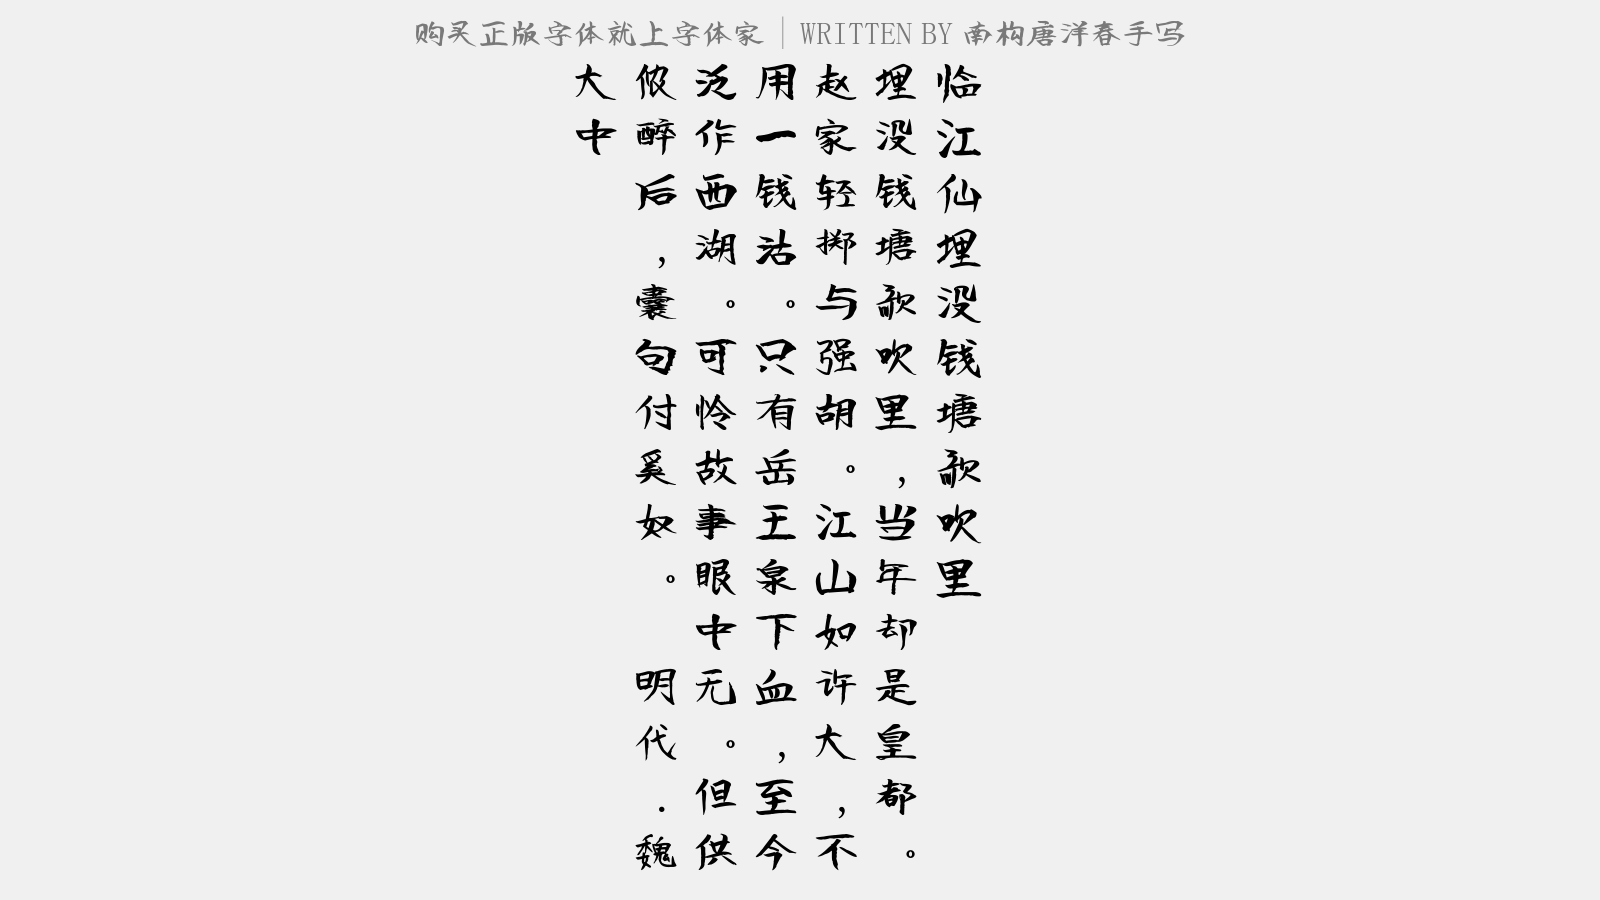 购买正版字体就上字体家｜WRITTEN BY 南构唐洋春手写
临江仙埋没钱塘歌吹里
埋没钱塘歌吹里，当年却是皇都。
赵家轻掷与强胡。江山如许大，不
用一钱沽。只有岳王泉下血，至今
泛作西湖。可怜故事眼中无。但供
侬醉后，囊句付奚奴。 明代．魏
大中